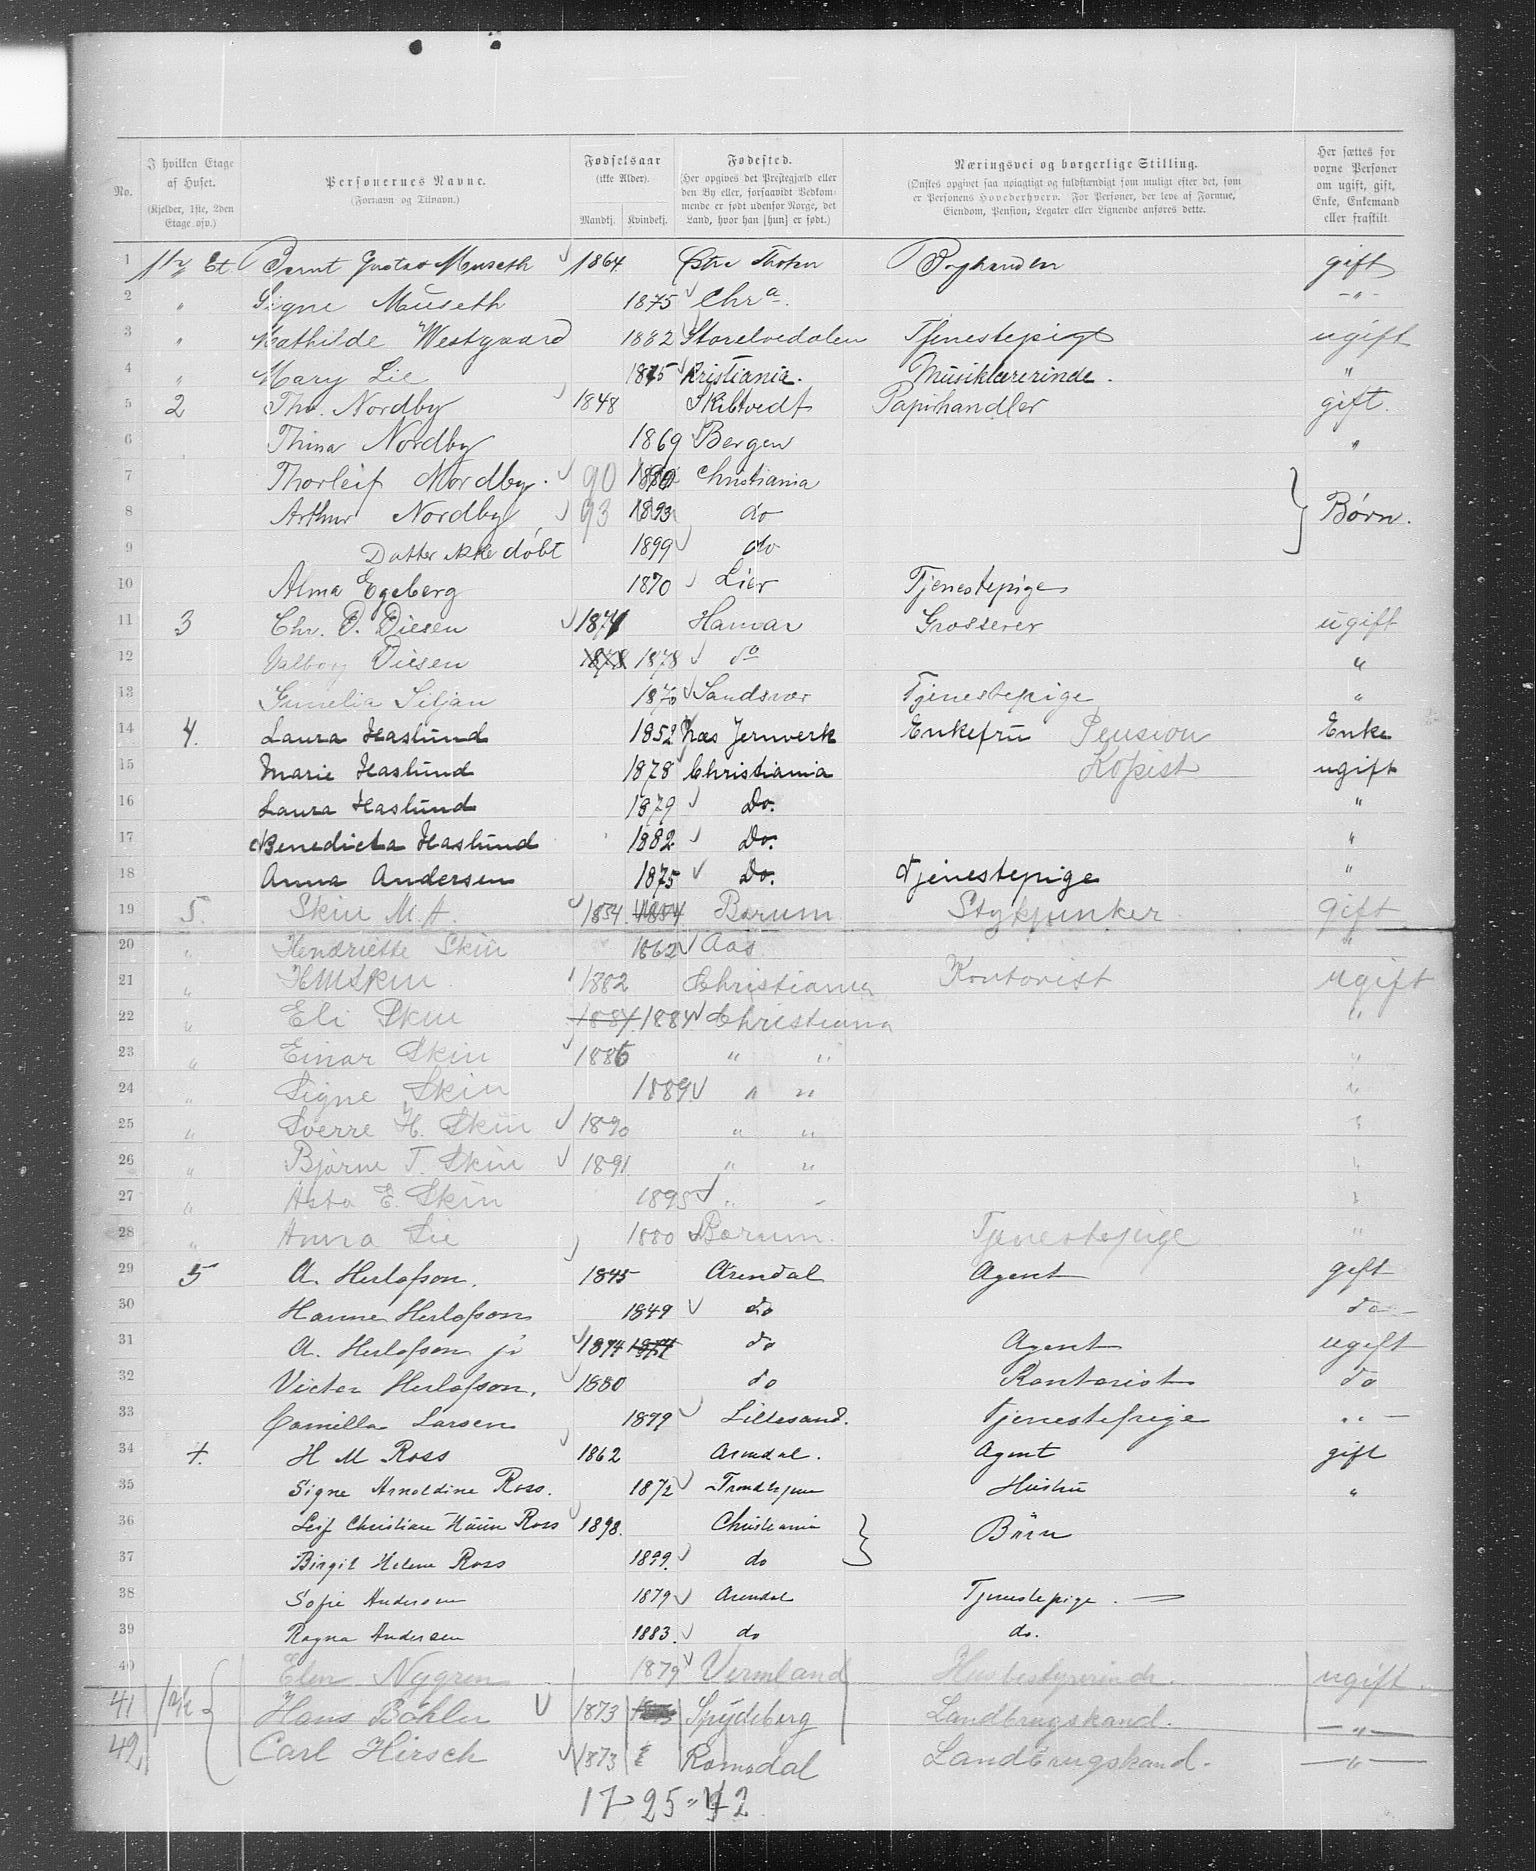 No. | I hvilken Etage af Huset. (Kjelder, 1ste, 2den Etage osv.) | Personernes Navne. (Fornavn og Tilnavn.) | Fødselsaar (ikke Alder). Mandkj. Kvindekj. | Fødested. (Her opgives det Prestegjæld eller den By eller, forsaavidt Vedkommende er født udenfor Norge, det Land, hvor han [hun] er født.) | Næringsvei og borgerlige Stilling. (Ønskes opgivet saa nøiagtigt og fuldstændigt som muligt efter det, som er Personens Hovederhverv. For Personer, der leve af Formue, Eiendom, Pension, Legater eller Lignende anføres dette. | Her sættes for voxne Personer om ugift, gift, Enke, Enkemand eller fraskilt
1 Et. Bernt Gustav Museth 1864 Østre Thoten gift
2 " Signe Museth 1875 Chr.a - " -
3 " Mathilde Westgaard 1882 Storelvedalen Tjenestepige ugift
4 " Mary Lie 1875 Kristiania. Musiklærerinde. "
5 2 Th. Nordby 1848 Skibtvedt Papirhandler gift.
6 Thina Nordby 1869 Bergen "
7 Thorleif Nordby. 90 Christiania
8 Arthur Nordby 93 1893 do } Børn.
9 Datter ikke døbt 1899 do
10 Alma Egeberg 1870 Lier Tjenestepige
11 3 Chr. D. Diesen 1871 Hamar Grosserer ugift
12 Valborg Diesen 1878 1878 do "
13 Gunelia Siljan 1870 Sandsvær Tjenestepige "
14 4. Laura Haslund 1852 Næs Jernverk Enkefru Pension Enke
15 Marie Haslund 1878 Christiania Kopist ugift
16 Laura Haslund 1879 Do. "
17 Benedicta Haslund 1882 Do. "
18 Anna Andersen 1875 Do. Tjenestepige "
19 5. Skiu M. A. 1854. 1854 Bærum Stykjunker gift
20 " Hendriette Skiu 1862 Aas "
21 " H M Skiu 1882 Christiania Kontorist ugift
22 " Eli Skiu 1884 1884 Christiania "
23 " Einar Skiu 1886 " " "
24 " Signe Skiu 1889 " " "
25 " Sverre H. Skiu 1890 " " "
26 " Bjarne T. Skiu 1891 " " "
27 " Asta E. Skiu 1895 " "
28 " Anna Lie 1880 Bærum. Tjenestepige "
29 5 A. Herlofson. 1845 Arendal Agent gift
30 Hanne Herlofson 1849 do do -
31 A. Herlofson jr 1874 1874 do Agent ugift
32 Victor Herlofson. 1880 do Kontorist do
33 Camilla Larsen 1879 Lillesand. Tjenestepige " -
34 H M Ross 1862 Arendal. Agent gift
35 Signe Arnoldine Ross. 1872 Trondhjem Hustru "
36 Leif Christian Ross 1898. Christiania } Børn
37 Birgit Helene Ross 1899. do
38 Sofie Andersen 1879 Arendal Tjenestepige.
39 Ragna Andersen 1883. do do.
40 Elen Nygren 1879 Vermland Husbestyrerinde. ugift
41 Hans Bøhler 1873 Spydeberg Landbrugskand. - " -
42, Carl Hirsch 1873 Romsdal Landbrugskand. - " -
17 - 25 - 42